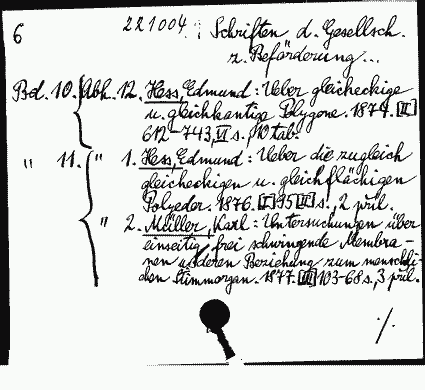 6 221004 Schriften d. Gesellsch.
z. Beförderung...
Bd. 10. Abh. 12. Hess, Edmund: Ueber gleicheckige
u. gleichkantige Polygone. 1874. [II]
612-743, VI s., 10 tab.
" 11. " 1. Hess, Edmund: Ueber die zugleich
gleicheckigen u. gleichflächigen
Polyeder. 1876. [I] 95 [II] s., 2 příl.
" 2. Müller, Karl: Untersuchungen über
einseitig frei schwingende Membra-
nen u. deren Beziehung zum menschli-
chen Stimmorgan. 1877. [III] 103-68 s., 3 příl.
./.